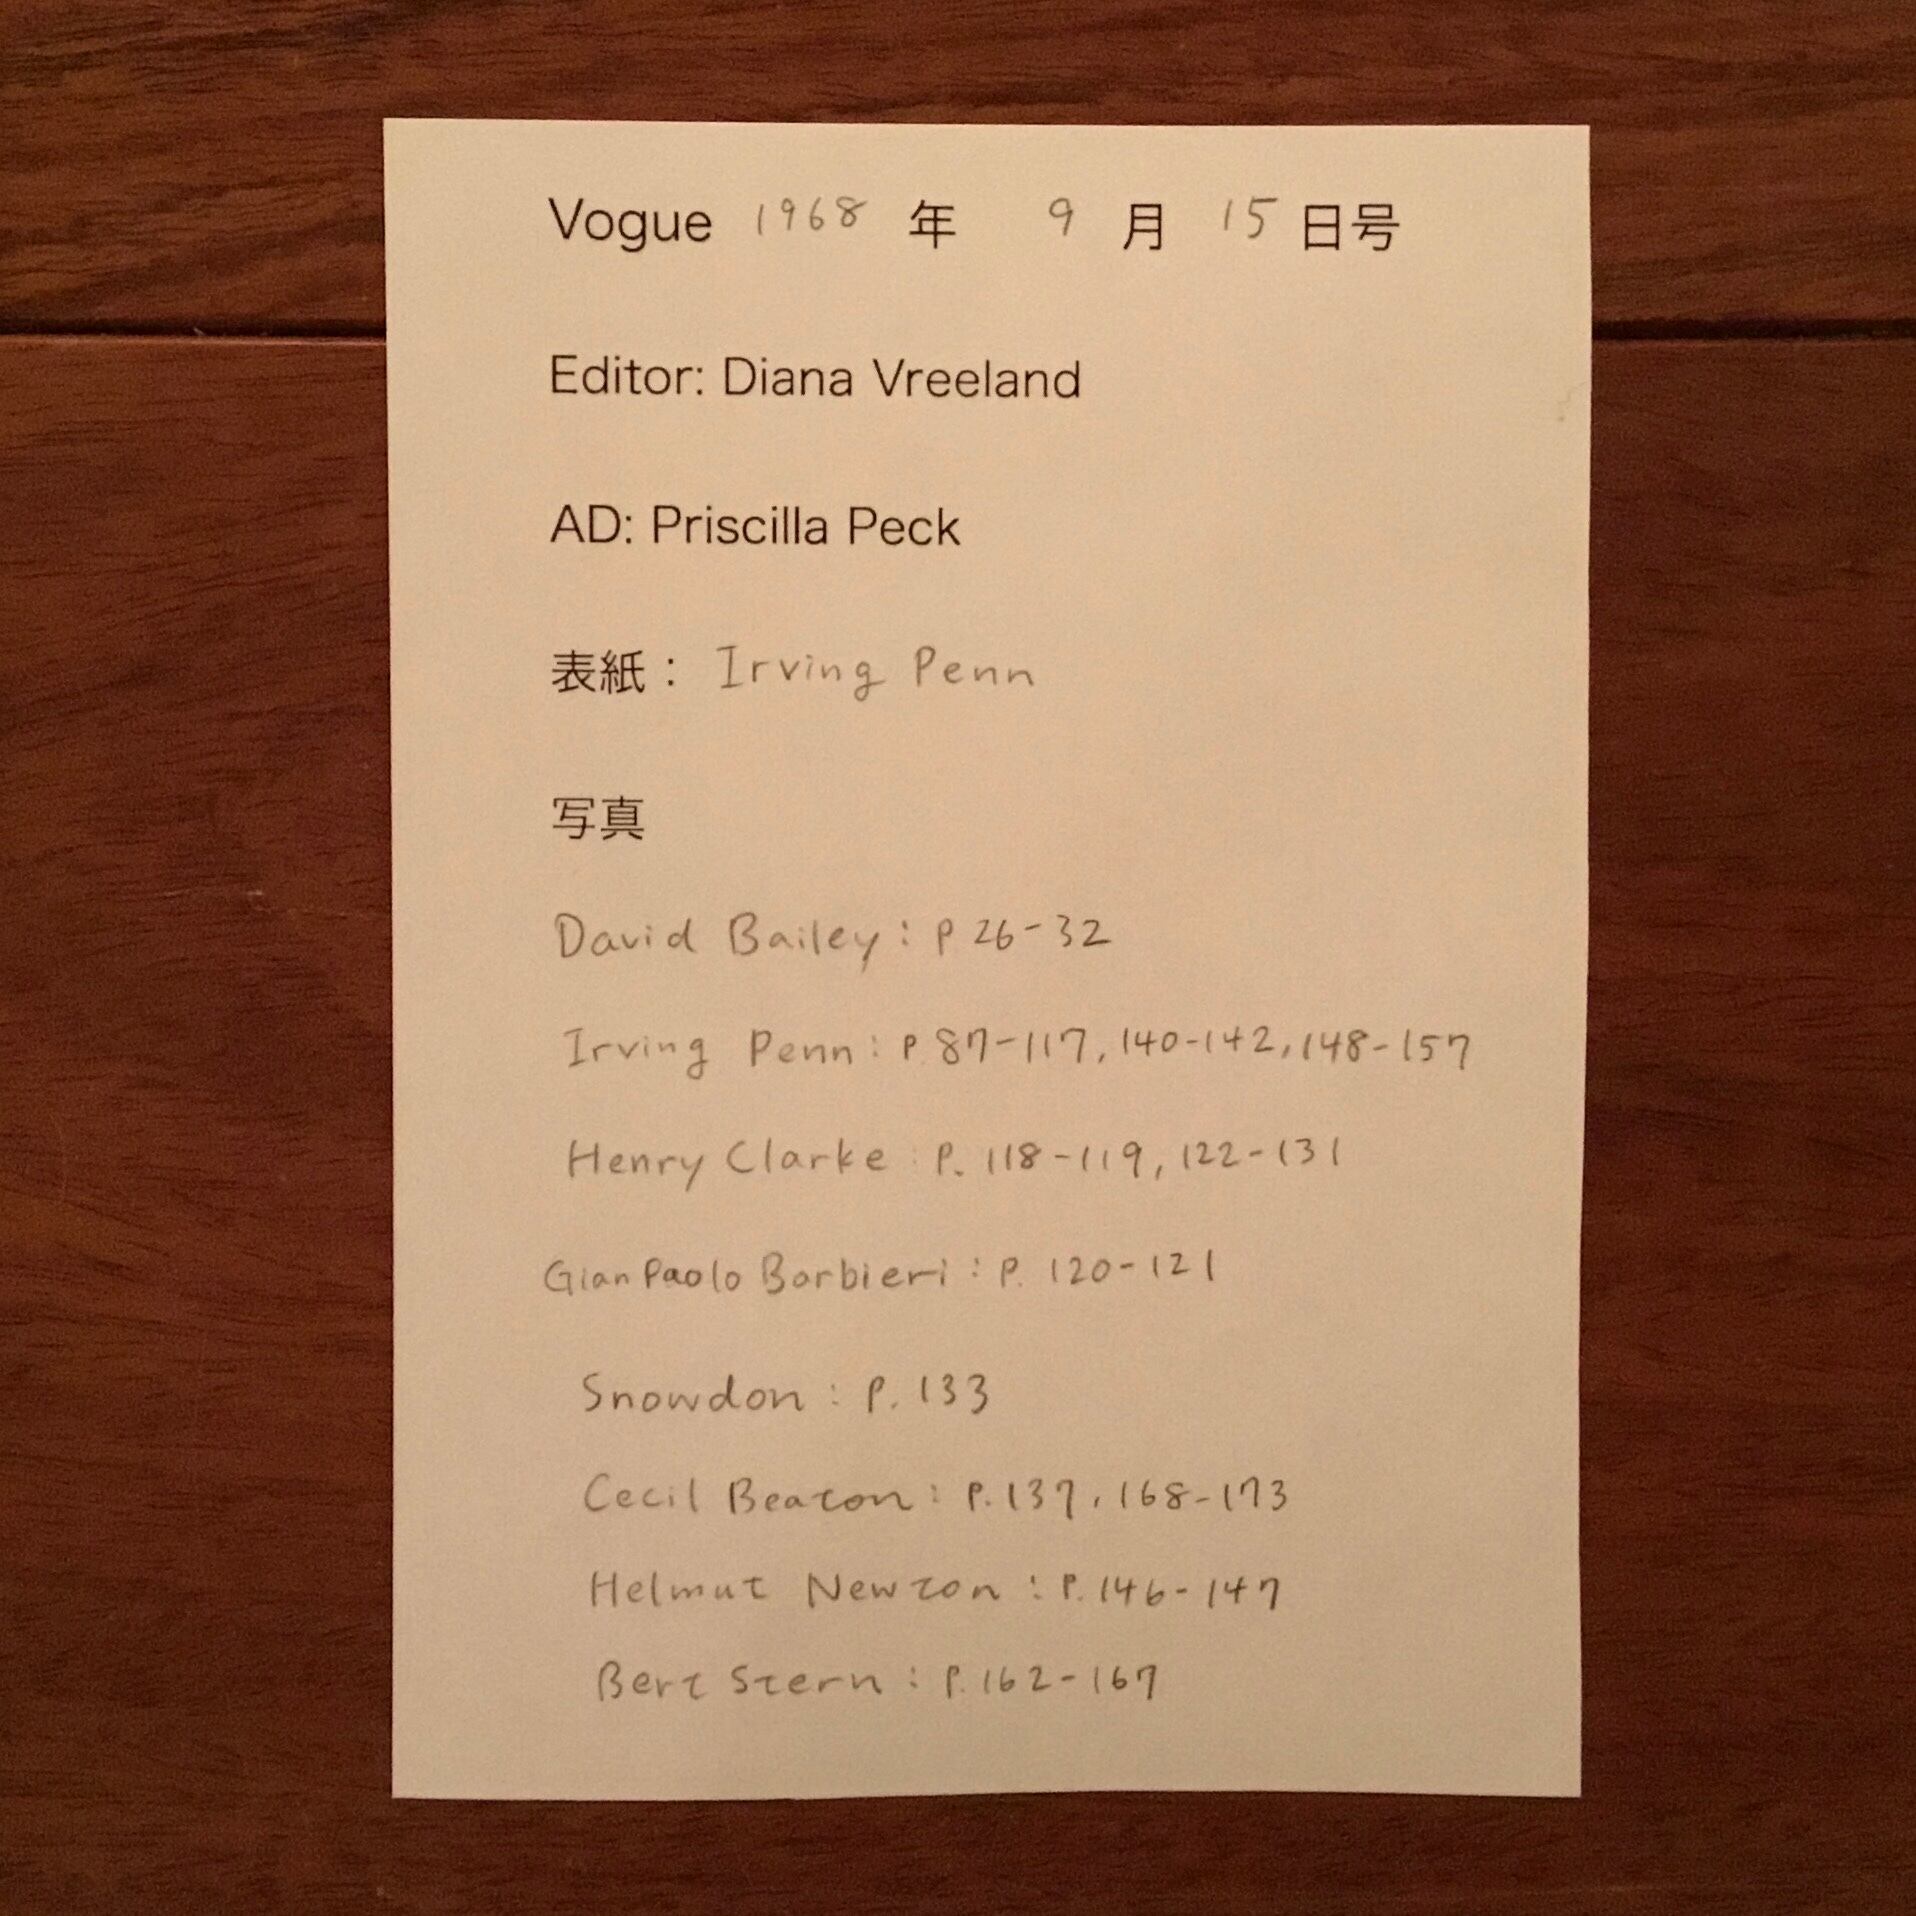 Vogue 1968 年 9 月 15 日号
Editor: Diana Vreeland
AD: Priscilla Peck
表紙： Irving Penn
写真
David Bailey : P 26-32
Irving Penn : P. 87-117, 140-142, 148-157
Henry Clarke : P. 118-119, 122-131
Gian Paolo Barbieri : P. 120-121
Snowdon : P. 133
Cecil Beaton : P. 137, 168-173
Helmut Newton : P. 146-147
Bert Stern : P. 162-167